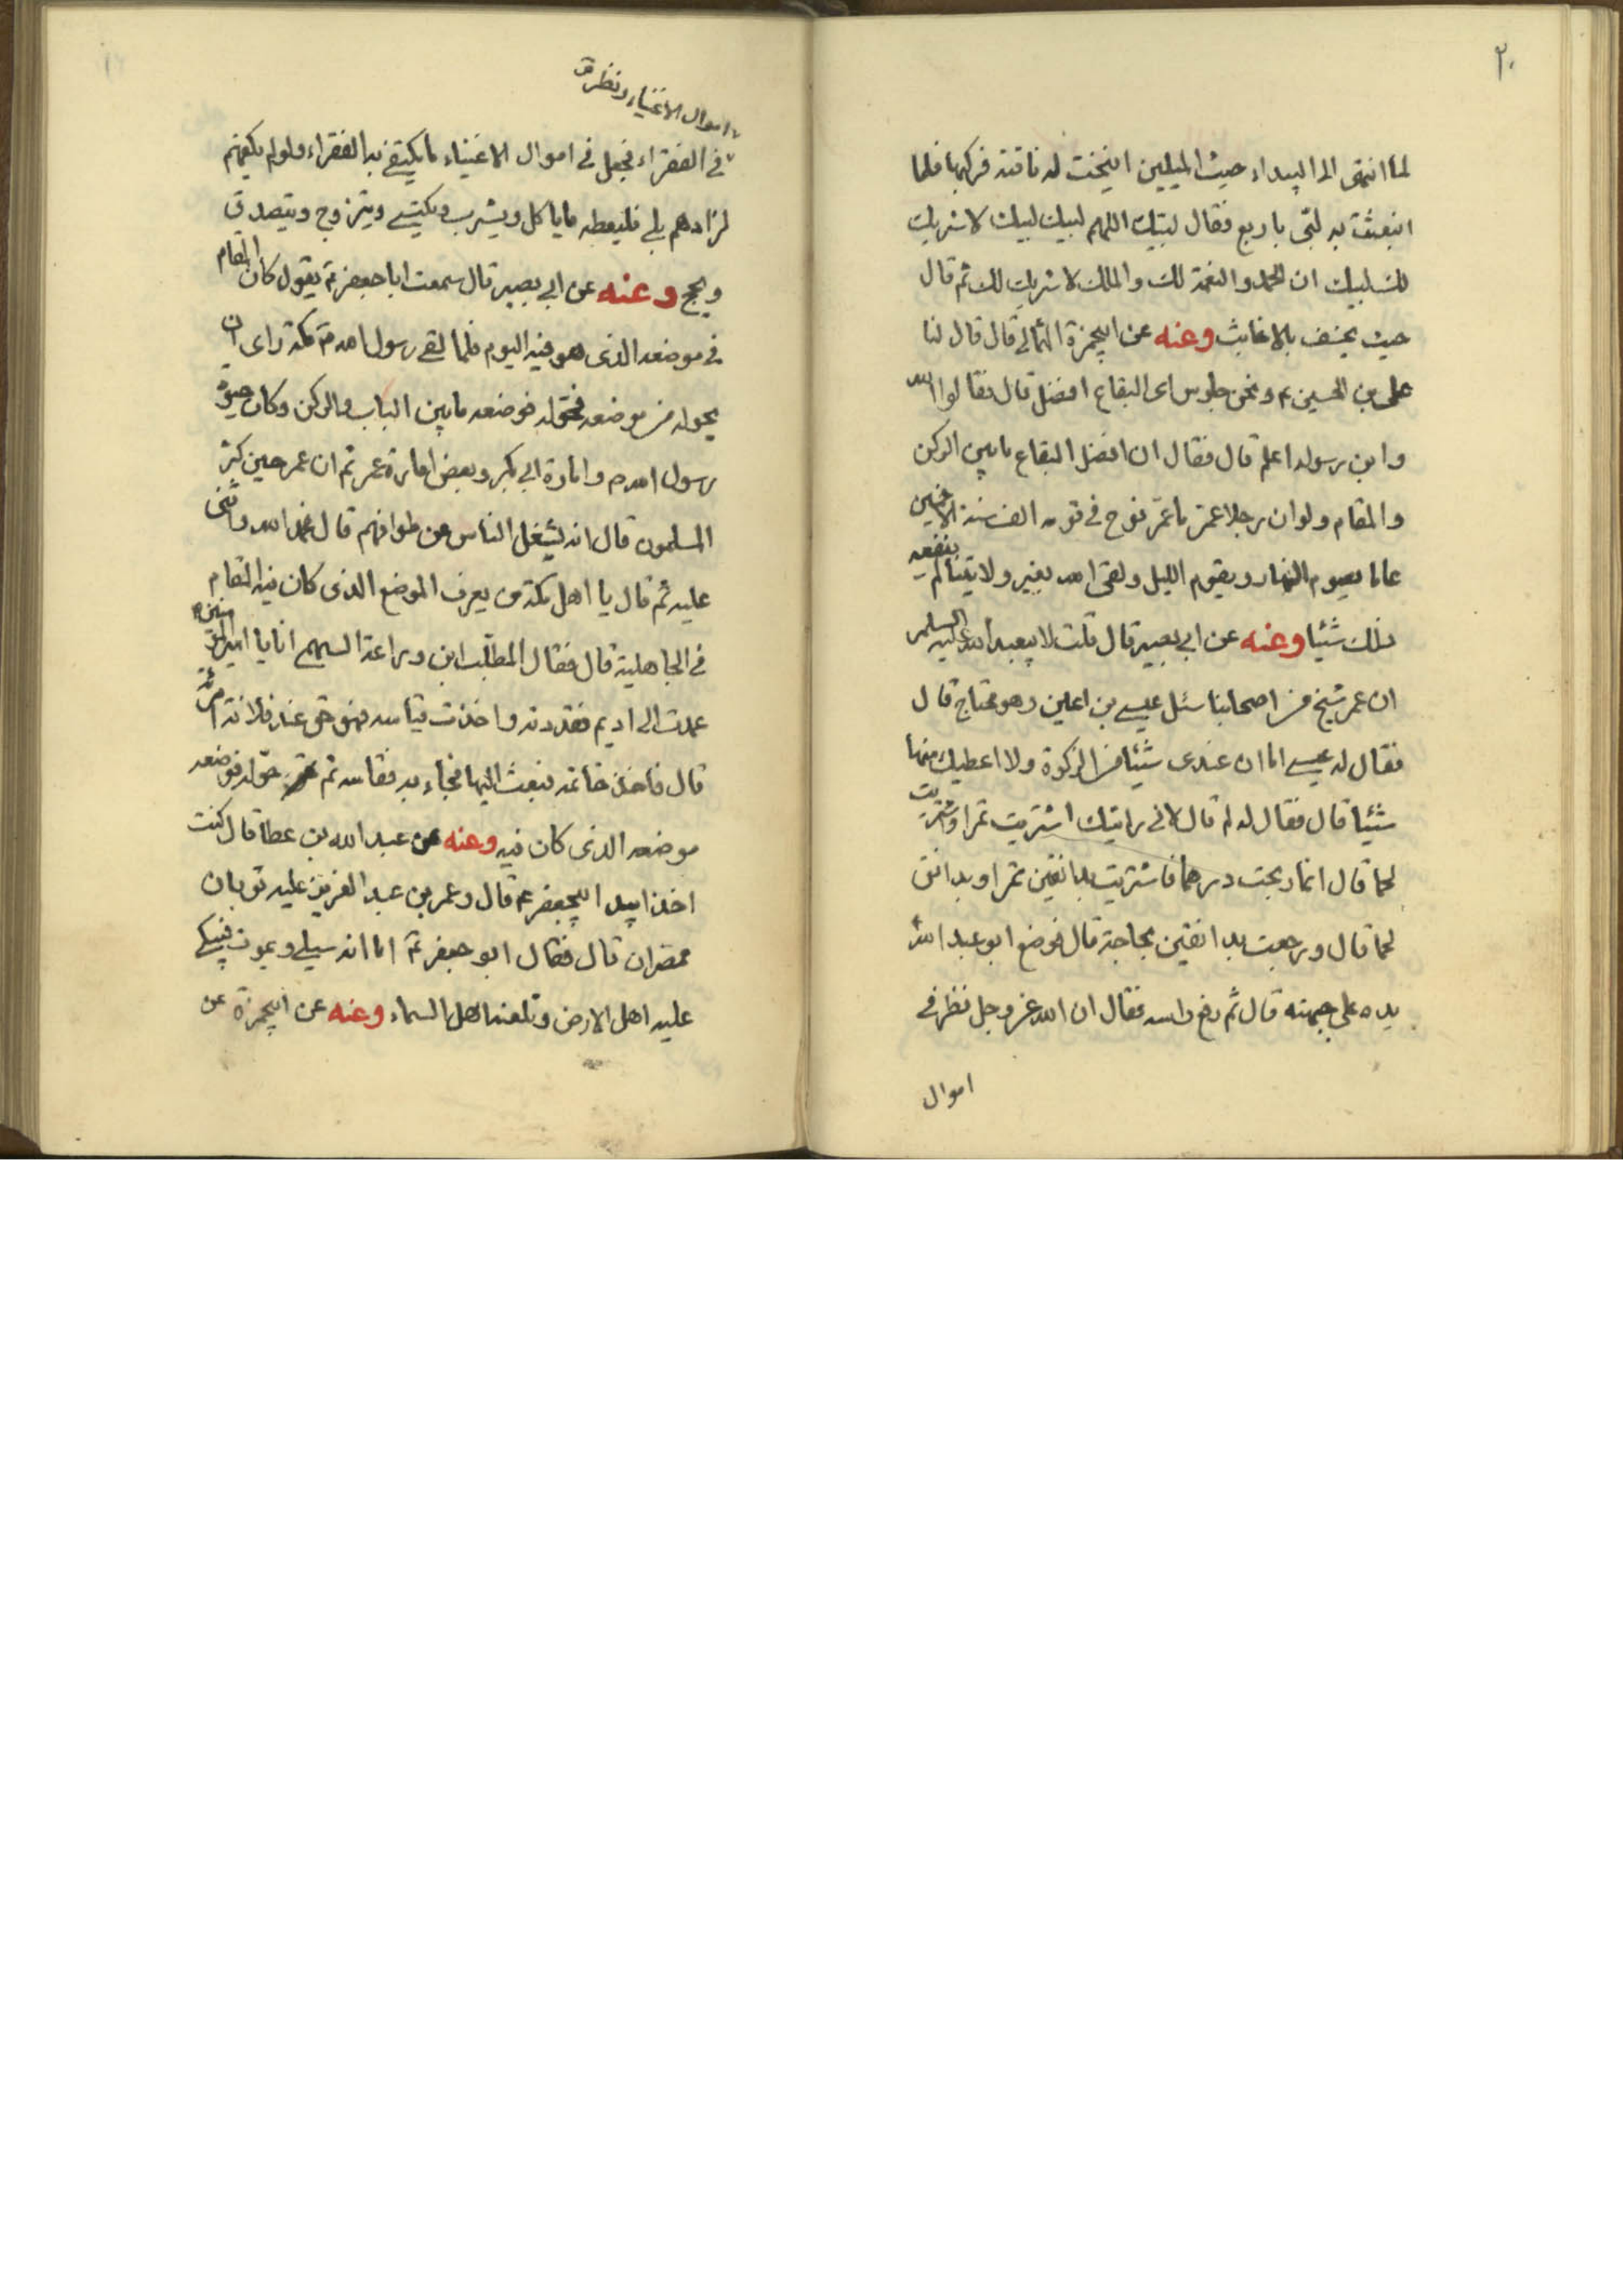 ٢٠
لما انتهى الى البيداء حيث الميلين انيخت له ناقته فركبها فلما
انبعثت به لبّى باربع فقال لبّيك اللهم لبيك لبيك لا شريك
لك لبيك ان الحمد والنعمة لك والملك لا شريك لك ثم قال
حيث يخسف بالاخابث وعنه عن ابيحمزة الثمالي قال قال لنا
على بن الحسين ع ونحن جلوس اى البقاع افضل قال فقالوا الله
وابن رسوله اعلم قال فقال ان افضل البقاع ما بين الركن
والمقام ولو ان رجلا عمّر ما عمّر نوح في قومه الف سنة الا خمسين
عاما يصوم النهار ويقوم الليل ولقى الله بغير ولايتنا لم ينفعه
ذلك شيئا وعنه عن ابي بصير قال قلت لابيعبد الله عليه السلم
ان عمر شيخ من اصحابنا سئل عيسى بن اعين وهو محتاج قال
فقال له عيسى اما ان عندى شيئا من الزكوة ولا اعطيك منها
شيئا قال فقال له لم قال لانى رايتك اشتريت تمرا واشتريت
لحما قال انما ربحت درهما فاشتريت بدانقين تمرا وبدانق
لحما قال ورجعت بدانقين لحاجة قال فوضع ابو عبد الله
يده على جبهته قال ثم رفع راسه فقال ان الله عز وجل نظر في
اموال
اموال الاغنياء ونظر
في الفقراء فجعل في اموال الاغنياء ما يكتفى به الفقراء ولو لم يكفهم
لزادهم بلى فليعطه ما ياكل ويشرب ويكتسى ويتزوج ويتصدق
ويحج وعنه عن ابي بصير قال سمعت ابا جعفر ع يقول كان المقام
في موضعه الذى هو فيه اليوم فلما لقى رسول الله ص مكة راى ان
يحوله من موضعه فحوّله فوضعه ما بين الباب والركن وكان حيوة
رسول الله ص وامارة ابي بكر وبعض امارة عمر ثم ان عمر حين كثر
المسلمون قال انه يشغل الناس عن طوافهم قال فحمد الله واثنى
عليه ثم قال يا اهل مكة من يعرف الموضع الذى كان فيه المقام
في الجاهلية قال فقال المطلب ابن وداعة السهمى انا يا امير المؤمنين
عمدت الى اديم فقددته واخذت قياسه فهو في حق عند فلانة امرأته
قال فاخذ خاتمه فبعث اليها فجاء به فقاسه ثم حوّله فوضعه
موضعه الذى كان فيه وعنه عن عبد الله بن عطا قال كنت
اخذا بيد ابيجعفر ع قال وعمر بن عبد العزيز عليه ثوبان
ممصران قال فقال ابو جعفر ع اما انه سيلى ويموت فيبكى
عليه اهل الارض وتلعنه اهل السماء وعنه عن ابيحمزة عن